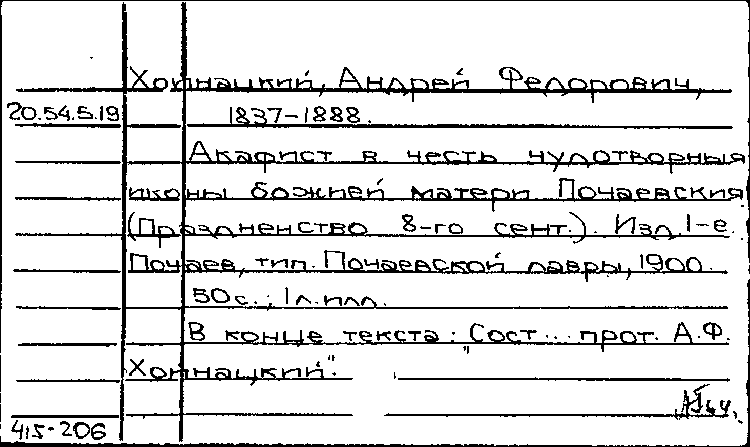 Хойнацкий, Андрей Федорович,
20.54.5.19 1837-1888.
Акафист в честь чудотворныя
иконы божией матери Почаевския
(Празднество 8-го сент.). Изд. 1-е.
Почаев, тип. Почаевской лавры, 1900.
50 с.; 1 л. илл.
В конце текста: "Сост... прот. А.Ф.
Хойнацкий".
415-206